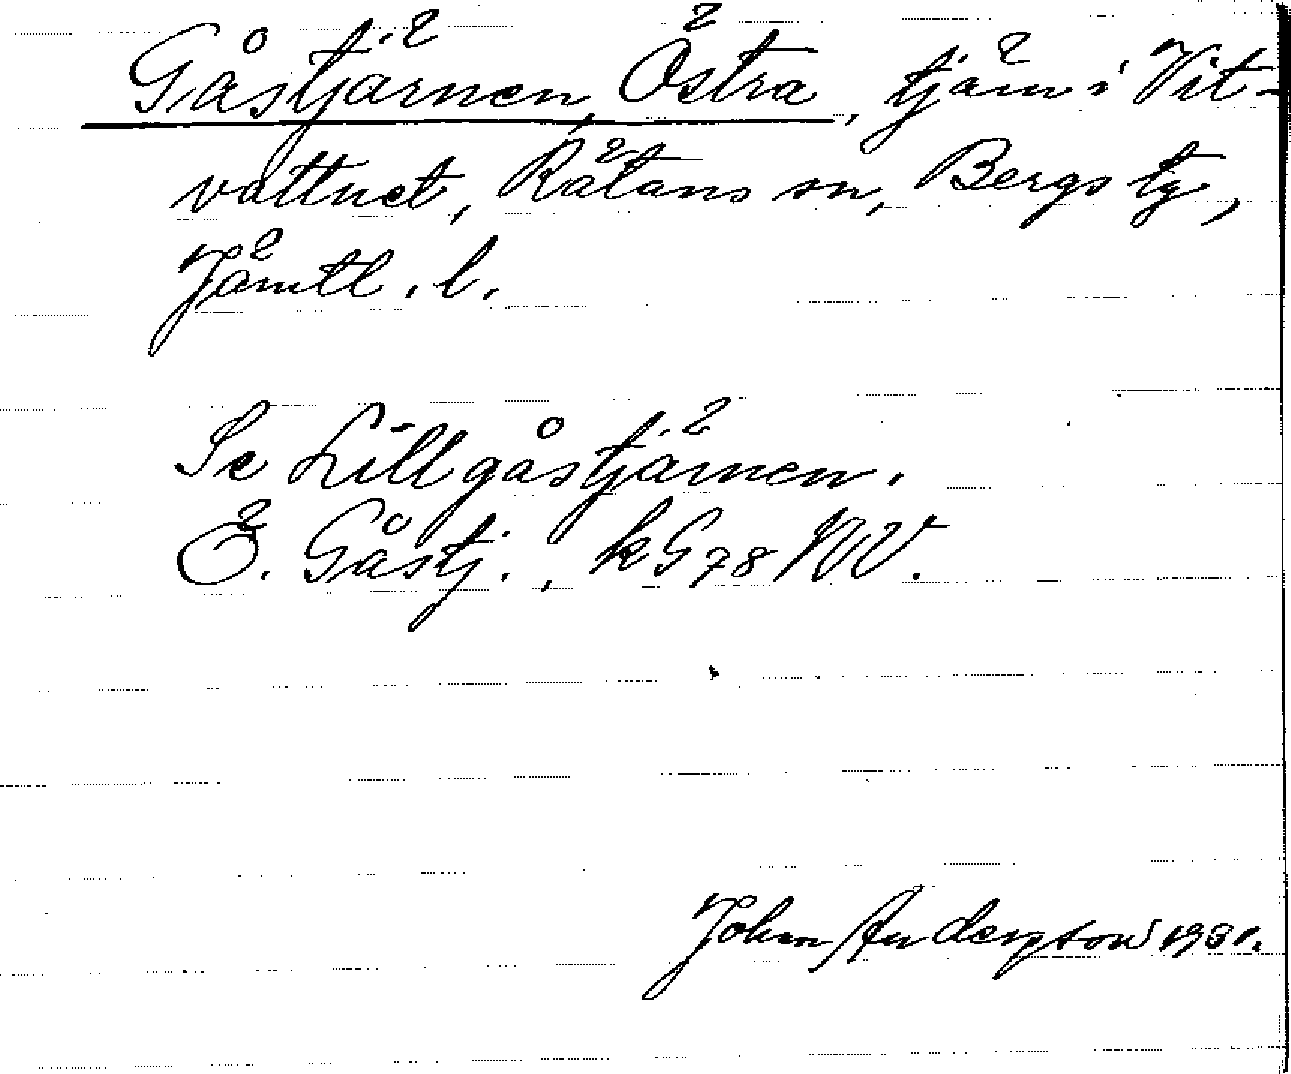 Gåstjärnen, Östra, tjärn i Vit-
vattnet, Rätans sn, Bergs tg,
Jämtl. l.
Se Lillgåstjärnen.
Ö. Gåstj., kG78NV.
John Andersson 1931.